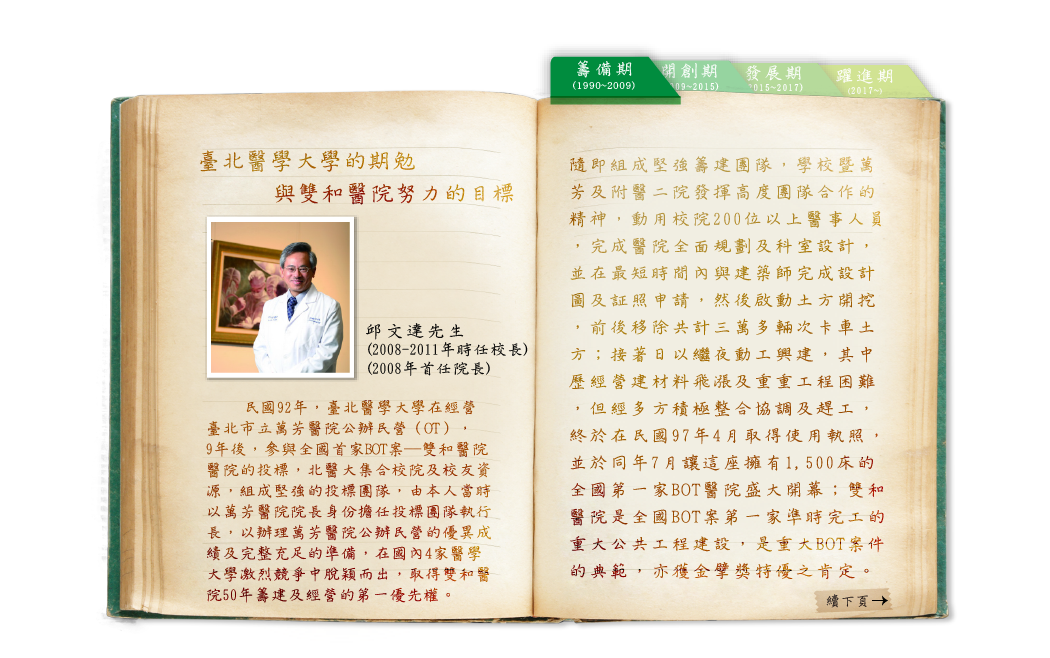 籌備期
(1990~2009)
開創期
09~2015)
發展期
2015~2017)
躍進期
(2017~)
臺北醫學大學的期勉
與雙和醫院努力的目標
邱文達先生
(2008-2011年時任校長)
(2008年首任院長)
民國92年，臺北醫學大學在經營
臺北市立萬芳醫院公辦民營（OT），
9年後，參與全國首家BOT案─雙和醫院
醫院的投標，北醫大集合校院及校友資
源，組成堅強的投標團隊，由本人當時
以萬芳醫院院長身份擔任投標團隊執行
長，以辦理萬芳醫院公辦民營的優異成
績及完整充足的準備，在國內4家醫學
大學激烈競爭中脫穎而出，取得雙和醫
院50年籌建及經營的第一優先權。
隨即組成堅強籌建團隊，學校暨萬
芳及附醫二院發揮高度團隊合作的
精神，動用校院200位以上醫事人員
，完成醫院全面規劃及科室設計，
並在最短時間內與建築師完成設計
圖及証照申請，然後啟動土方開挖
，前後移除共計三萬多輛次卡車土
方；接著日以繼夜動工興建，其中
歷經營建材料飛漲及重重工程困難
，但經多方積極整合協調及趕工，
終於在民國97年4月取得使用執照，
並於同年7月讓這座擁有1,500床的
全國第一家BOT醫院盛大開幕；雙和
醫院是全國BOT案第一家準時完工的
重大公共工程建設，是重大BOT案件
的典範，亦獲金擘獎特優之肯定。
續下頁→